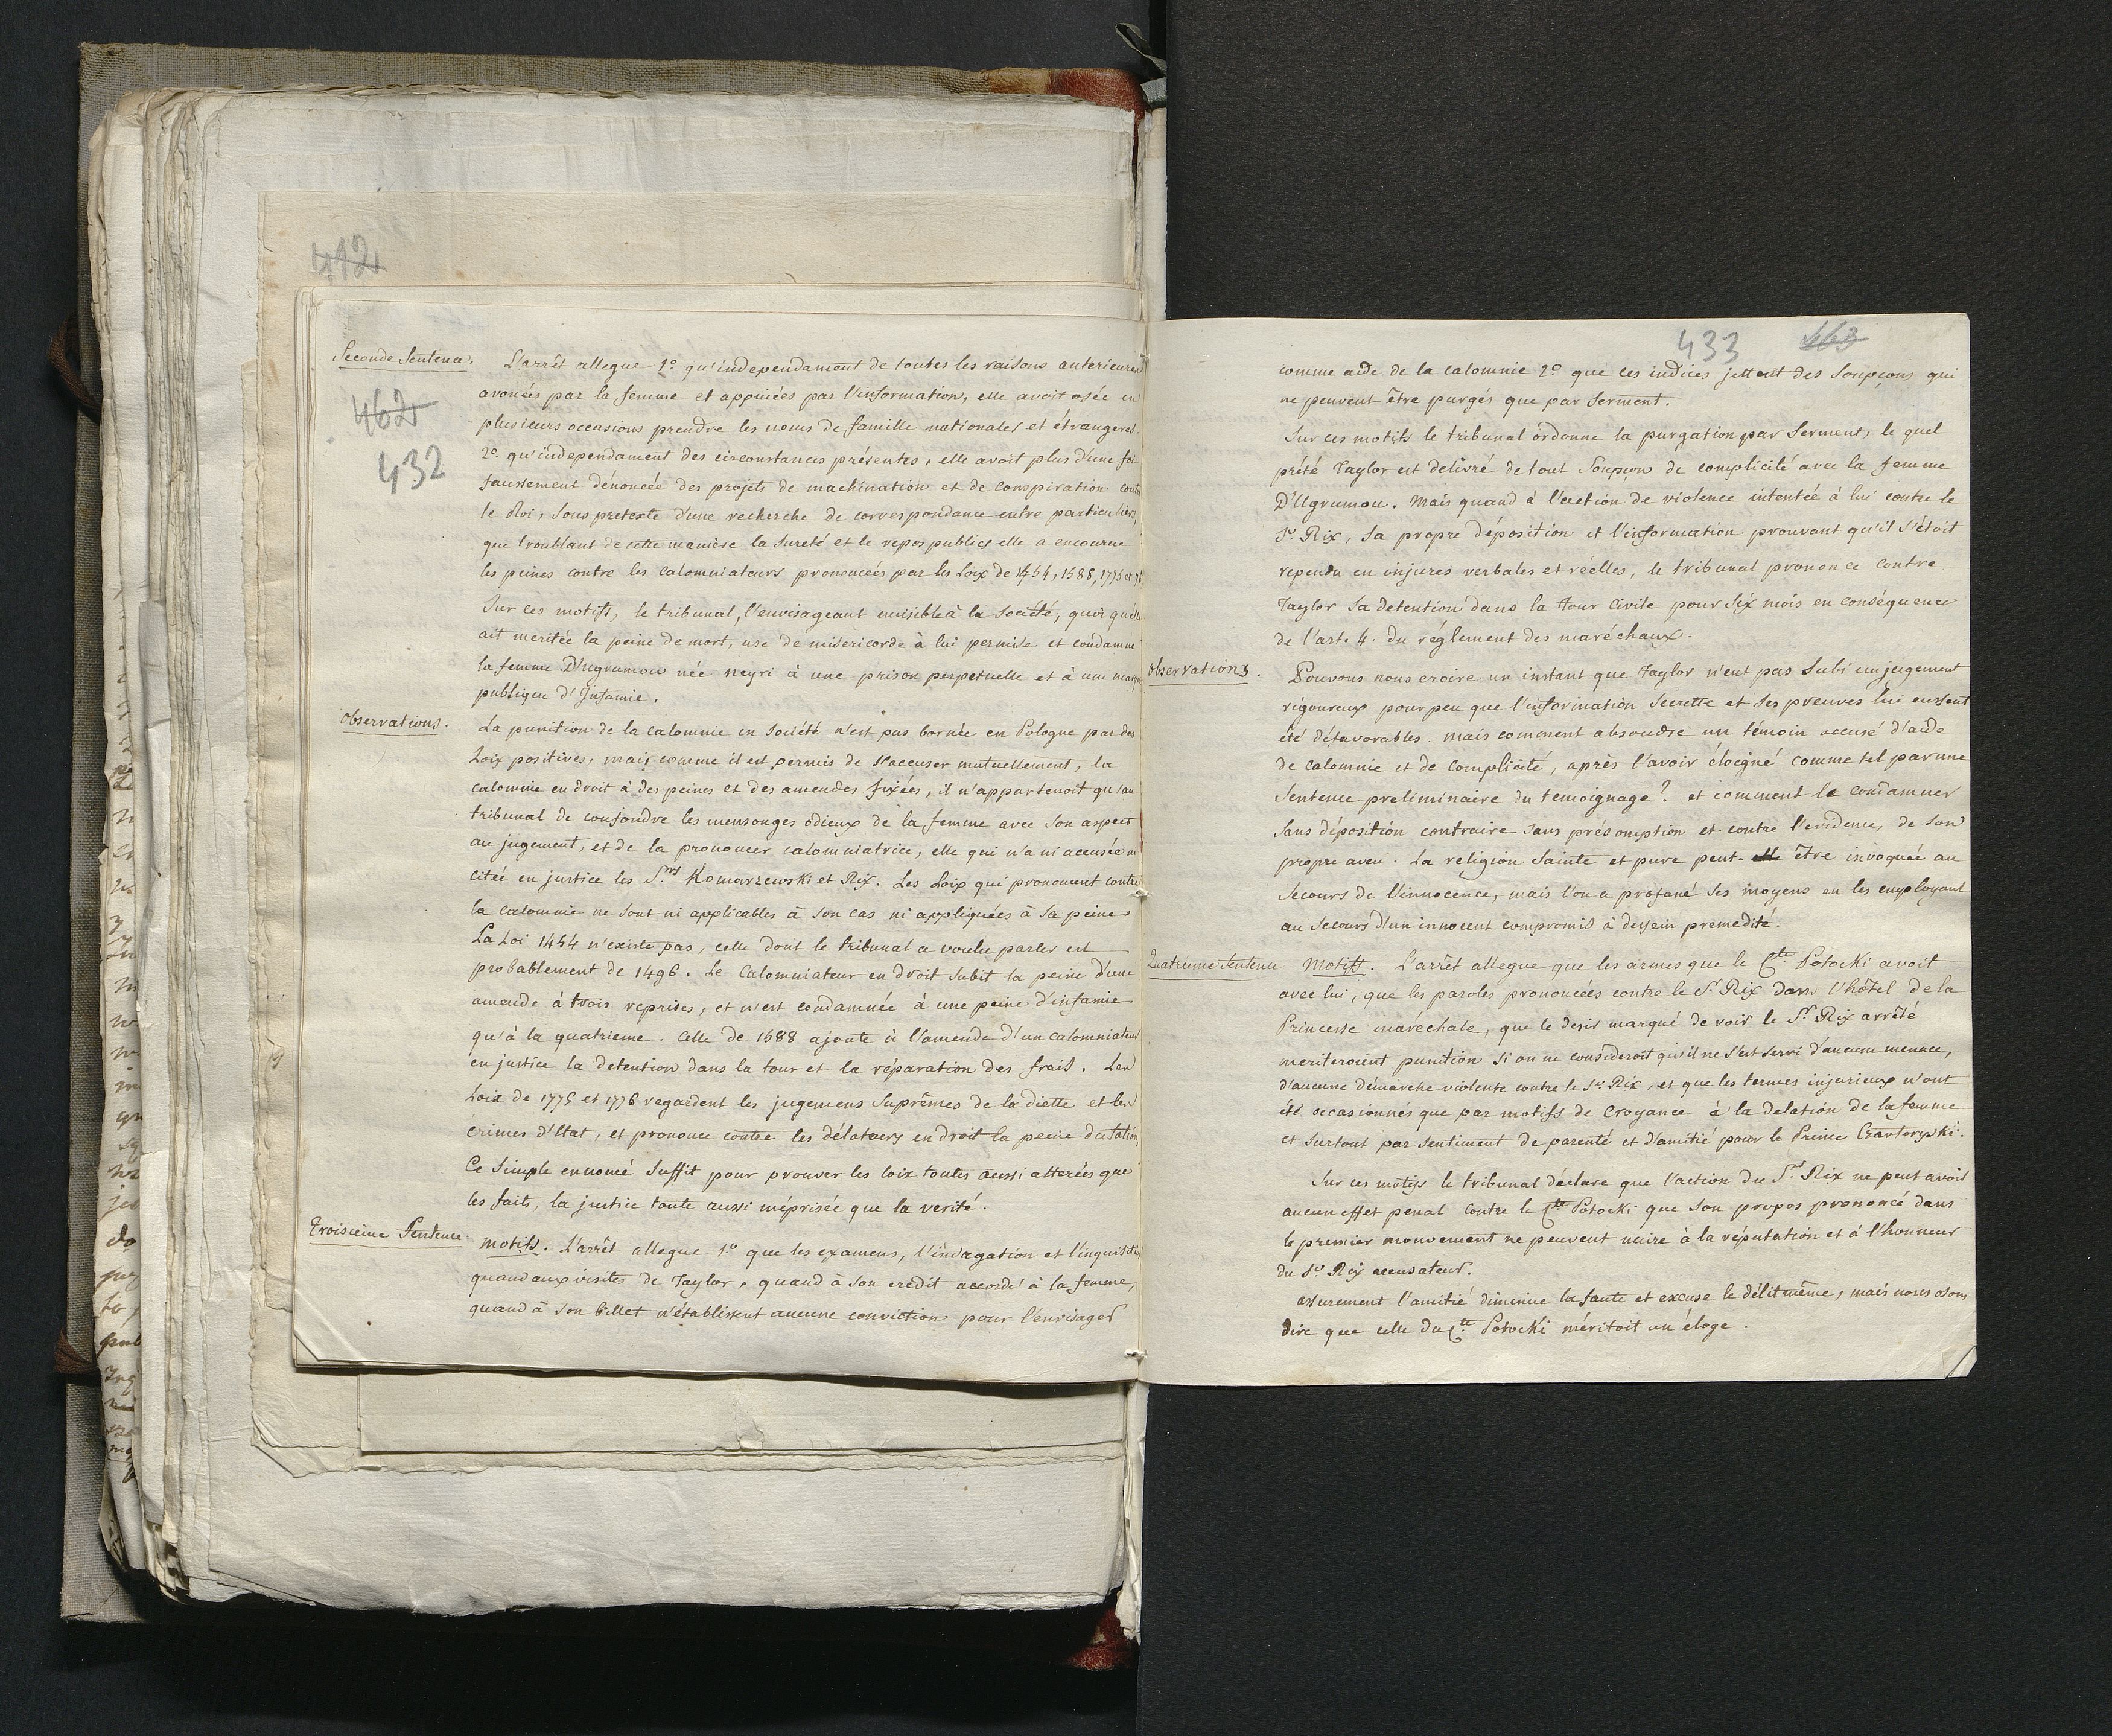 412
Seconde Sentence.
462
432
L'arrêt allegue 1.º qu'independament de toutes les raisons anterieures
avouées par la femme et appuiées par l'information, elle avoit osée en
plusieurs occasions prendre les noms de famille nationales et étrangeres.
2º. qu'independament des circonstances présentes, elle avoit plus d'une foi
faussement denoncée des projets de machination et de conspiration contre
le Roi, sous pretexte d'une recherche de correspondance entre particuliers,
que troublant de cette manière la sureté et le repos publics elle a encourue
les peines contre les calomniateurs prononcées par les Loix de 1454, 1588, 1775 et
Sur ces motifs, le tribunal, l'envisageant nuisible à la Société, quoi qu'elle
ait meritée la peine de mort, use de misericorde à lui permise et condamne
la femme D'Ugrumow née Neyri à une prison perpetuelle et à une marque
publique d'Infamie.
Observations.
La punition de la calomnie en Société n'est pas bornée en Pologne par des
Loix positives, mais comme il est permis de s'accuser mutuellement, la
calomnie en droit à des peines et des amendes fixées, il n'appartenoit qu'au
tribunal de confondre les mensonges odieux de la femme avec son aspect
au jugement, et de la prononcer calomniatrice, elle qui n'a ni accusée ni
citée en justice les S.rs Komarzewski et Rix. Les Loix qui prononcent contre
la calomnie ne sont ni applicables à son cas ni appliquées à sa peine.
La Loi 1454 n'existe pas, celle dont le tribunal a voulu parler est
probablement de 1496. Le Calomniateur en droit subit la peine d'une
amende à trois reprises, et n'est condamnée à une peine d'infamie
qu'à la quatrieme. Celle de 1588 ajoute à l'amende d'un calomniateur
en justice la detention dans la tour et la réparation des frais. Les
Loix de 1775 et 1776 regardent les jugemens Suprêmes de la diette et les
crimes d'Etat, et prononce contre les délateurs en droit la peine du talion,
Ce simple ennomé suffit pour prouver les loix toutes aussi alterées que
les faits, la justice toute aussi méprisée que la verité.
Troisieme Sentence.
Motifs. L'arrêt allegue 1.º que les examens, l'indagation et l'inquisition
quand aux visites de Taylor, quand à son credit accordé à la femme,
quand à son billet n'établissent aucune conviction pour l'envisager
433
463
comme aide de la calomnie 2.º que ces indices jettent des soupçons qui
ne peuvent être purgés que par Serment.
Sur ces motifs le tribunal ordonne la purgation par Serment, le quel
prété Taylor est delivré de tout Soupçon de complicité avec la femme
D'Ugrumow. Mais quand à l'action de violence intentée à lui contre le
S.r Rix, sa propre déposition et l'information prouvant qu'il s'étoit
rependu en injures verbales et réelles, le tribunal prononce contre
Taylor sa detention dans la Tour Civile pour Six mois en conséquence
de l'art. 4. du réglement des maréchaux.
Observations.
Pouvons nous croire un instant que Taylor n'eut pas subi un jugement
rigoureux pour peu que l'information Secrette et ses preuves lui eussent
été défavorables. Mais comment absoudre un témoin accusé d'aide
de calomnie et de complicité, après l'avoir éloigné comme tel par une
sentence preliminaire du temoignage? et comment le condamner
sans déposition contraire sans présomption et contre l'evidence, de son
propre aveu. La religion Sainte et pure peut- être invoquée au
Secours de l'innocence, mais l'on a profané ses moyens en les employant
au Secours d'un innocent compromis à dessein premedité.
Quatrieme Sentence
Motifs. L'arrêt allegue que les armes que le C.te Potocki avoit
avec lui, que les paroles prononcées contre le S.r Rix dans l'hôtel de la
Princesse maréchale, que le desir marqué de voir le S.r Rix arrêté
meriteroient punition si on ne consideroit qu'il ne s'est servi d'aucune menace,
d'aucune démarche violente contre le S.r Rix, et que les termes injurieux n'ont
été occasionnés que par motifs de Croyance à la delation de la femme
et surtout par sentiment de parenté et d'amitié pour le Prince Czartoryski.
Sur ces motifs le tribunal déclare que l'action du S.r Rix ne peut avoir
aucun effet penal contre le C.te Potocki que son propos prononcé dans
le premier mouvement ne peuvent nuire à la réputation et à l'honneur
du S.r Rix accusateur.
assurement l'amitié diminue la faute et excuse le délit même, mais nous osons
dire que celle du C.te Potocki méritoit un éloge.